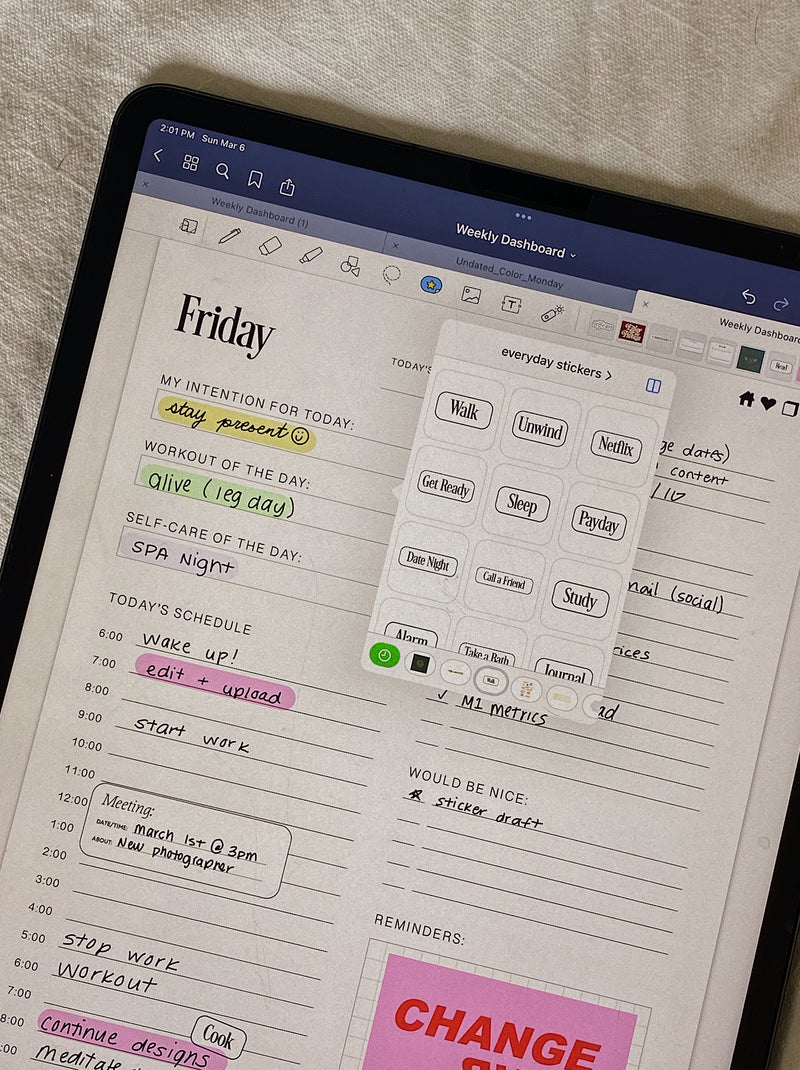 2:01 PM Sun Mar 6
Weekly Dashboard
Weekly Dashboard (1)
Undated_Color_Monday
Weekly Dashboard
Friday
TODAY'S
MY INTENTION FOR TODAY:
stay present
WORKOUT OF THE DAY:
alive (leg day)
SELF-CARE OF THE DAY:
SPA Night
TODAY'S SCHEDULE
6:00 wake up!
7:00 edit + upload
8:00
9:00 start work
10:00
11:00
12:00
1:00
2:00
Meeting:
DATE/TIME: march 1st @ 3pm
ABOUT: New photographer
3:00
4:00
5:00 stop work
6:00 workout
7:00
8:00 continue designs
Cook
:00 meditate
everyday stickers >
Walk Unwind Netflix
Get Ready Sleep Payday
Date Night Call a Friend Study
Alarm Take a Bath Journal
Read
ge dates)
content
/17
mail (social)
rices
ad
✓ M1 metrics
WOULD BE NICE:
sticker draft
REMINDERS:
CHANGE